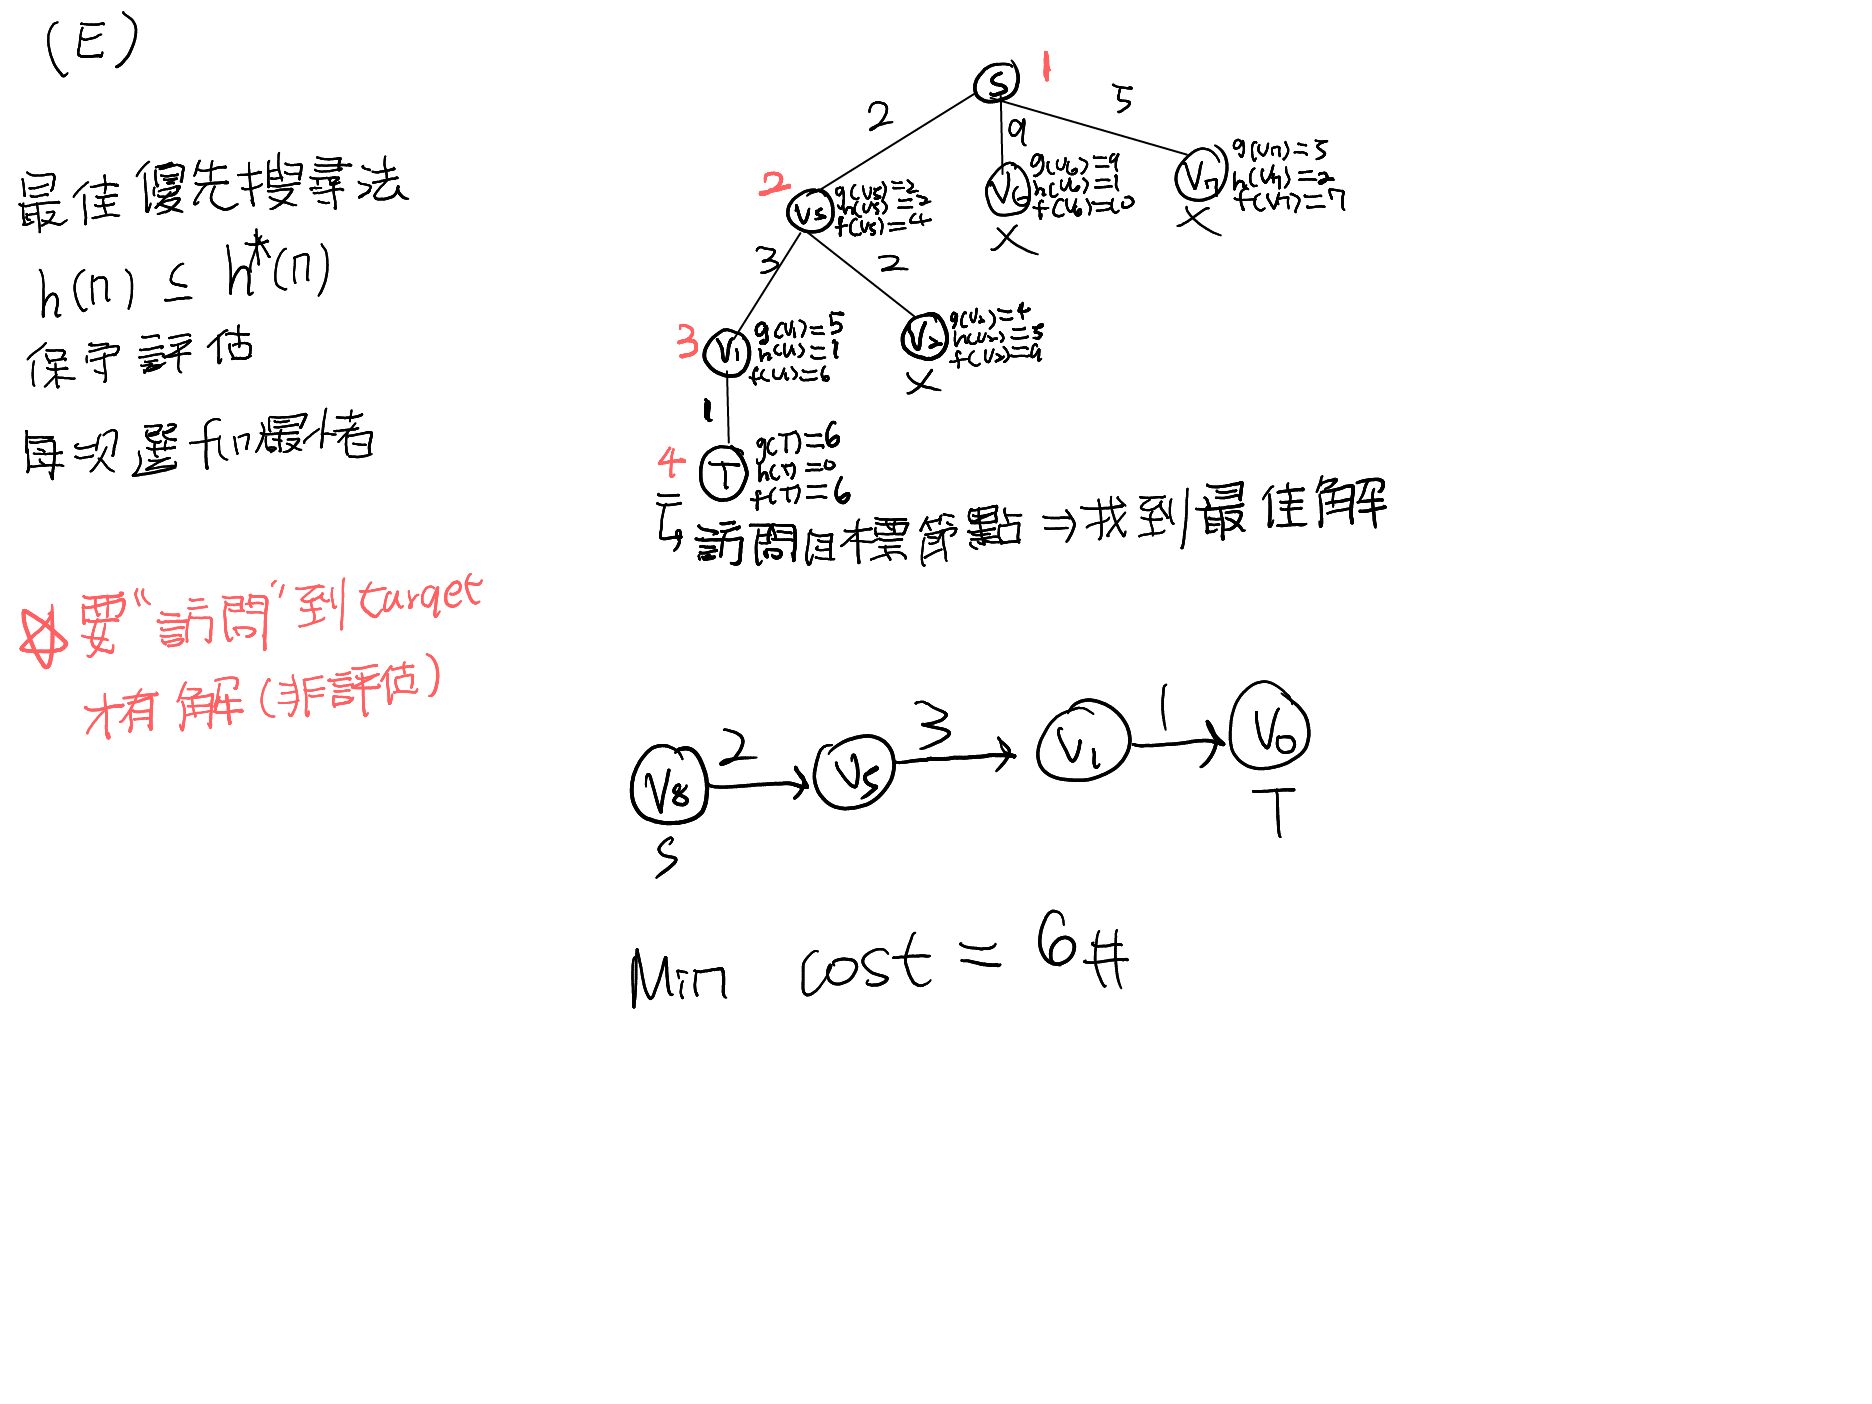 (E)
最佳優先搜尋法
h(n) ≤ h*(n)
保守評估
每次選f(n)最小者
☆要"訪問"到target
才有解(非評估)
S 1
2 9 5
2 V5 g(V5)=2 h(V5)=2 f(V5)=4
V6 g(V6)=9 h(V6)=1 f(V6)=10 ×
V7 g(V7)=5 h(V7)=2 f(V7)=7 ×
3 2
3 V1 g(V1)=5 h(V1)=1 f(V1)=6
V2 g(V2)=4 h(V2)=5 f(V2)=9 ×
1
4 T g(T)=6 h(T)=0 f(T)=6
↳訪問目標節點⇒找到最佳解
V8 2 V5 3 V1 1 V0
S T
Min cost = 6#